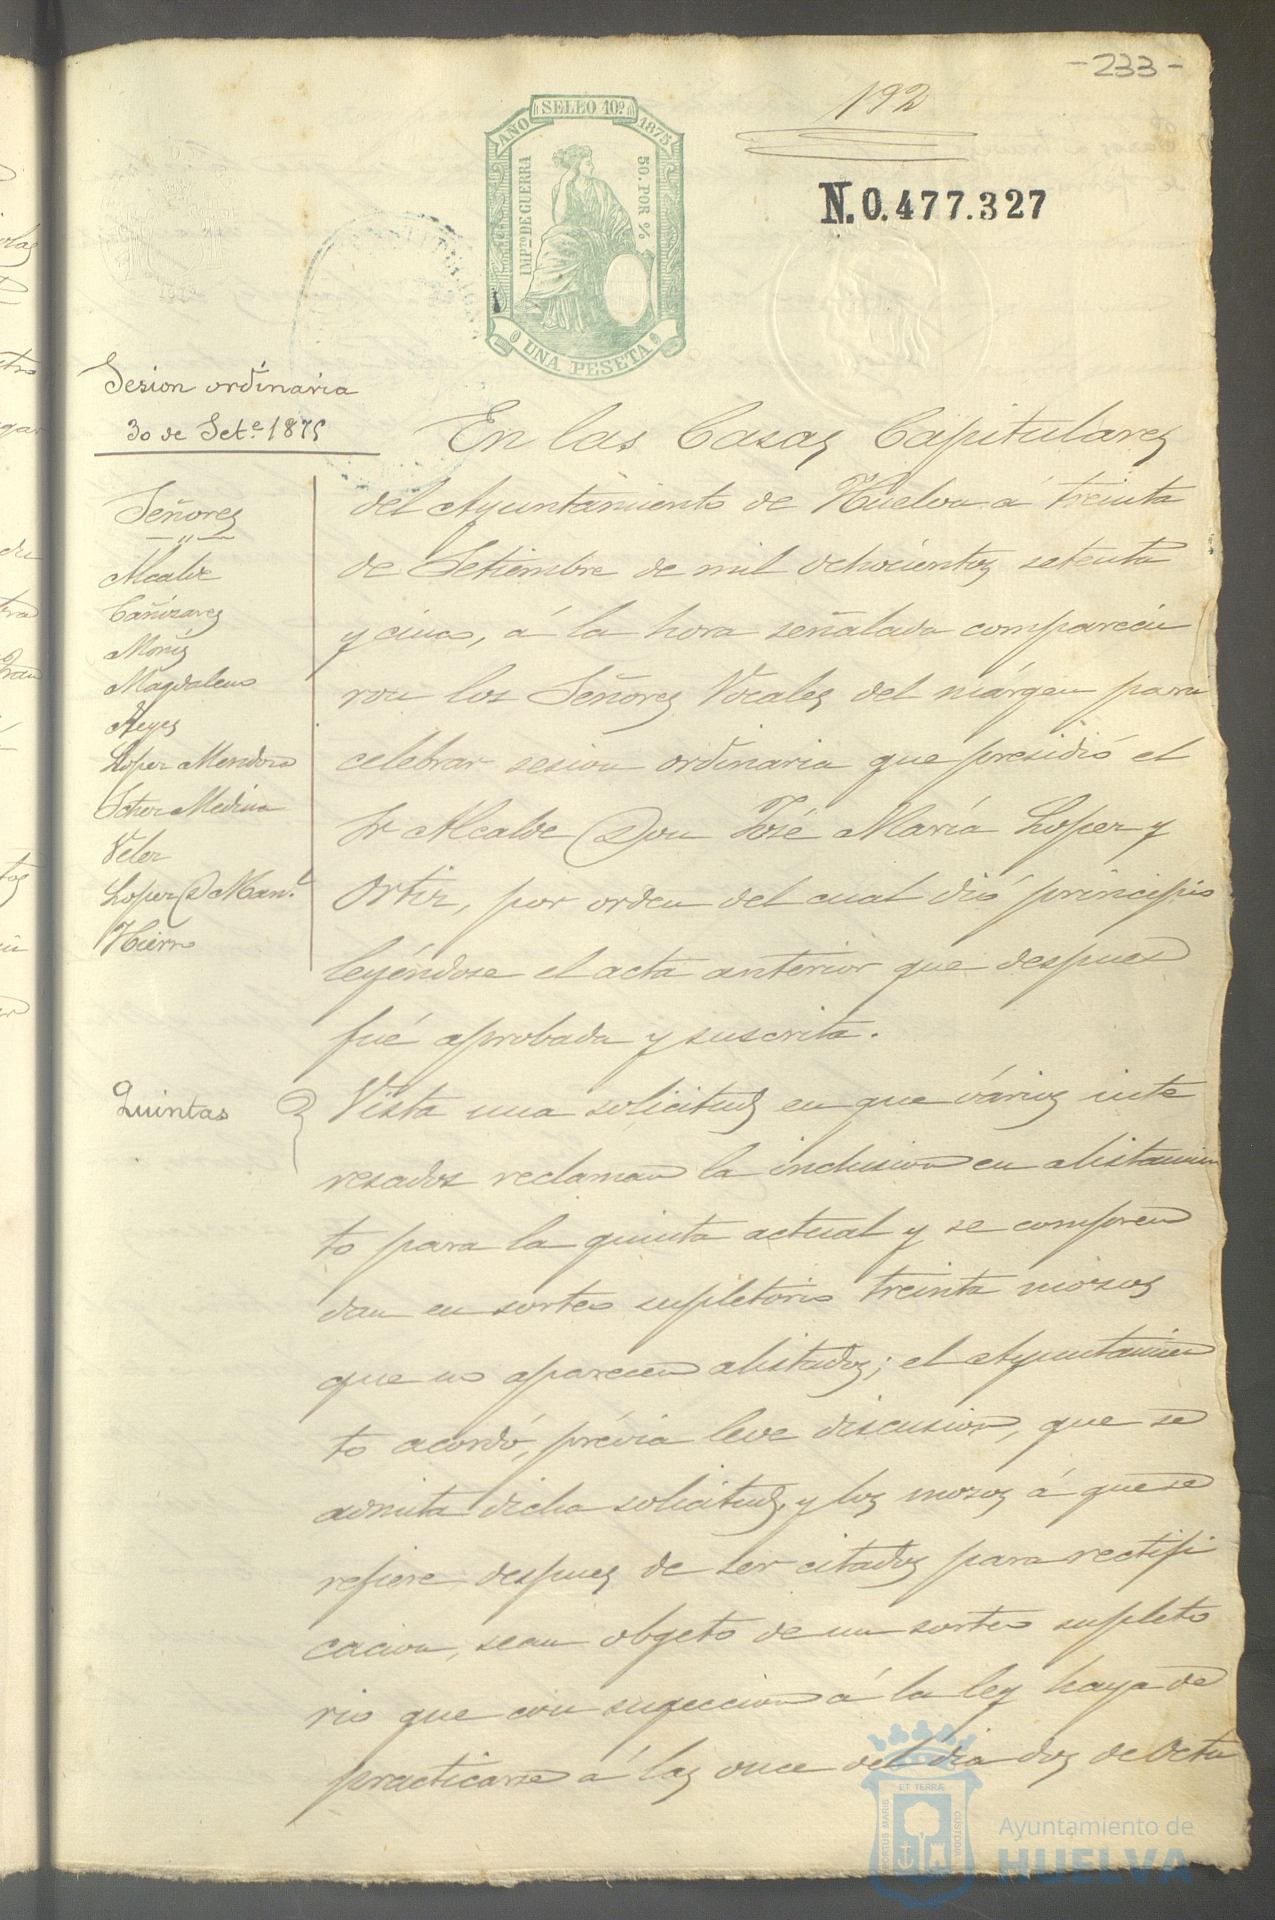 -233-
192
SELLO 10º
AÑO 1875
IMPtoDE GUERRA
50. POR %
UNA PESETA
N.0.477.327
Sesion ordinaria
30 de Sete. 1875
Señores
Alcalde
Cañizares
Moñiz
Magdaleno
Reyes
Lopez Mendoza
Velez
Lopez D. Manl.
Hierro
En las Casas Capitulares
del Ayuntamiento de Huelva á treinta
de Setiembre de mil ochocientos setenta
y cinco, á la hora señalada comparecie
ron los Señores Vocales del márgen para
celebrar sesion ordinaria que presidió el
Sr Alcalde Don José María Lopez y
Ortiz, por orden del cual dió principio
leyéndose el acta anterior que despues
fué aprobada y suscrita.
Quintas
Vista una solicitud en que vários inte
resados reclaman la inclusion en alistamien
to para la quinta actual y se compren
dan en sorteo supletorio treinta mozos
que no aparecen alistados; el Ayuntamien
to acordó, prévia leve discusion, que se
admita dicha solicitud, y los mozos á que se
refiere despues de ser citados para rectifi
cacion, sean objeto de un sorteo supleto
rio que con sugeccion á la ley haya de
practicarse á las once del dia dos de Octu
PORTUS MARIS
ET TERRÆ
CUSTODIA
Ayuntamiento de
HUELVA